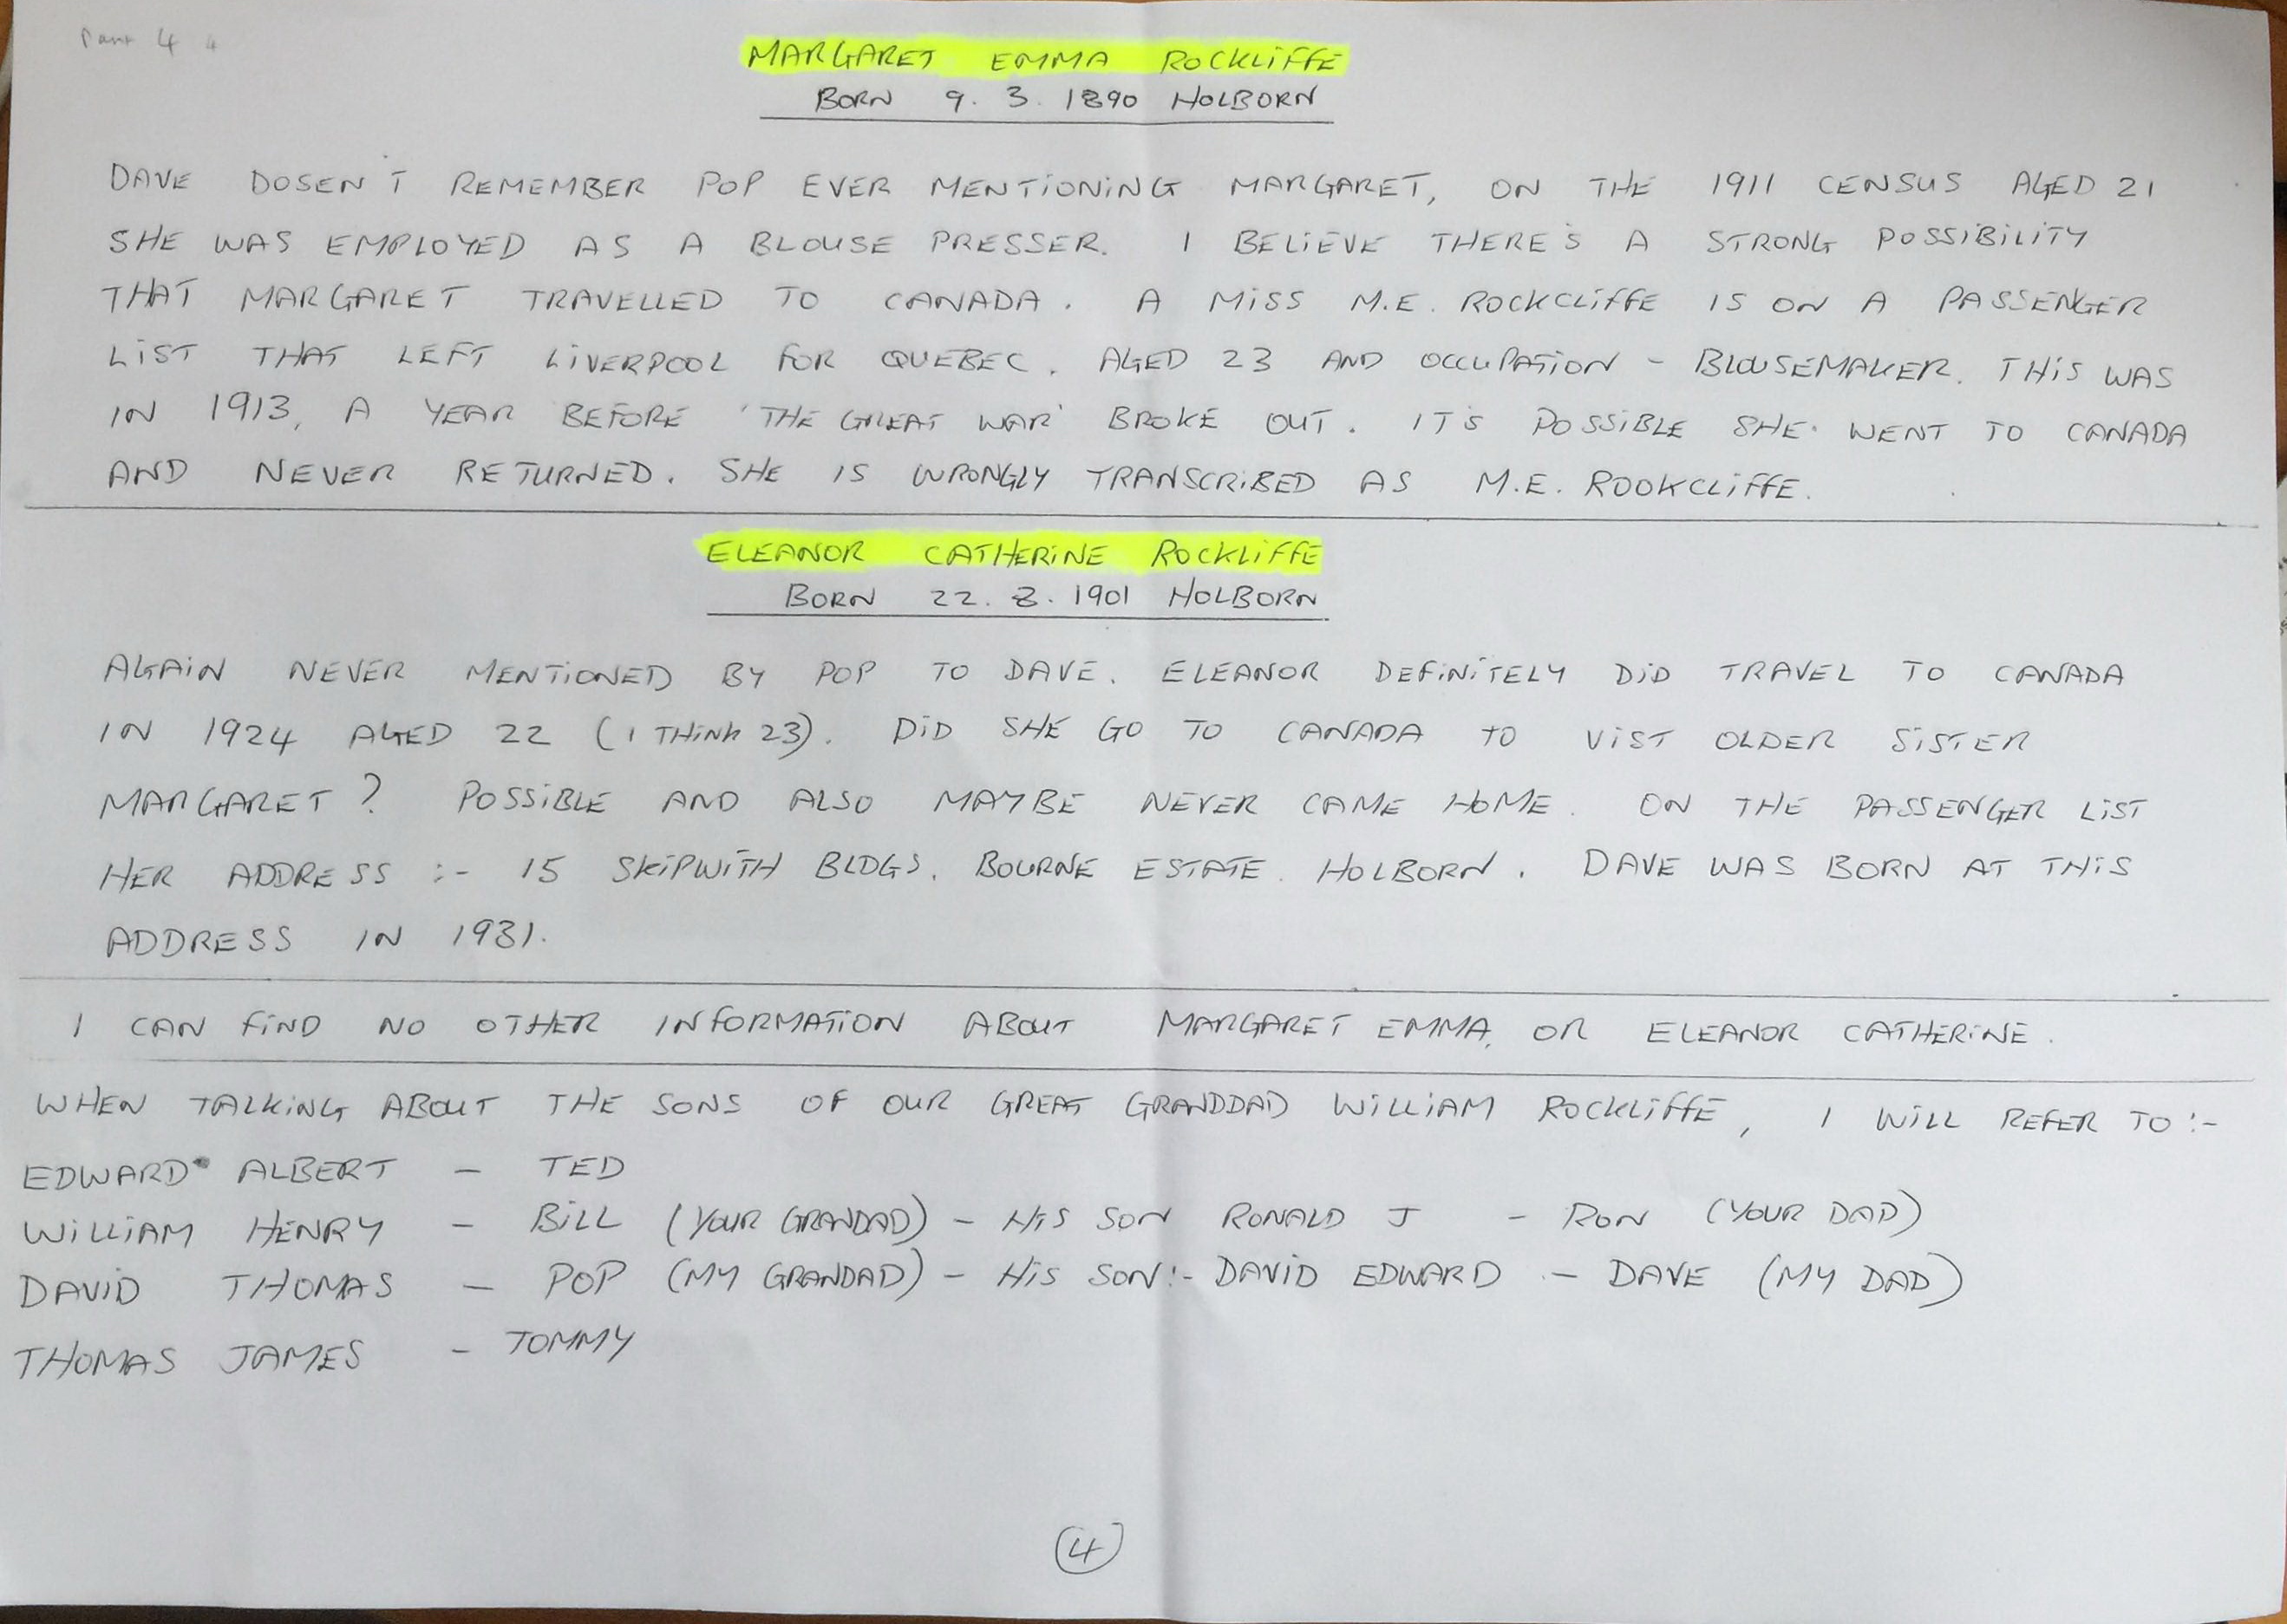 Part 4 4
MARGARET EMMA ROCKLIFFE
BORN 9. 3. 1890 HOLBORN
DAVE DOSEN'T REMEMBER POP EVER MENTIONING MARGARET, ON THE 1911 CENSUS AGED 21
SHE WAS EMPLOYED AS A BLOUSE PRESSER. I BELIEVE THERE'S A STRONG POSSIBILITY
THAT MARGARET TRAVELLED TO CANADA. A MISS M.E. ROCKCLIFFE IS ON A PASSENGER
LIST THAT LEFT LIVERPOOL FOR QUEBEC. AGED 23 AND OCCUPATION - BLOUSEMAKER. THIS WAS
IN 1913, A YEAR BEFORE 'THE GREAT WAR' BROKE OUT. IT'S POSSIBLE SHE WENT TO CANADA
AND NEVER RETURNED. SHE IS WRONGLY TRANSCRIBED AS M.E. ROOKCLIFFE.
ELEANOR CATHERINE ROCKLIFFE
BORN 22. 8. 1901 HOLBORN
AGAIN NEVER MENTIONED BY POP TO DAVE. ELEANOR DEFINITELY DID TRAVEL TO CANADA
IN 1924 AGED 22 (I THINK 23). DID SHE GO TO CANADA TO VIST OLDER SISTER
MARGARET? POSSIBLE AND ALSO MAYBE NEVER CAME HOME. ON THE PASSENGER LIST
HER ADDRESS :- 15 SKIPWITH BLDGS. BOURNE ESTATE. HOLBORN. DAVE WAS BORN AT THIS
ADDRESS IN 1931.
I CAN FIND NO OTHER INFORMATION ABOUT MARGARET EMMA, OR ELEANOR CATHERINE.
WHEN TALKING ABOUT THE SONS OF OUR GREAT GRANDDAD WILLIAM ROCKLIFFE, I WILL REFER TO :-
EDWARD ALBERT - TED
WILLIAM HENRY - BILL (YOUR GRANDAD) - HIS SON RONALD J - RON (YOUR DAD)
DAVID THOMAS - POP (MY GRANDAD) - HIS SON :- DAVID EDWARD - DAVE (MY DAD)
THOMAS JAMES - TOMMY
4